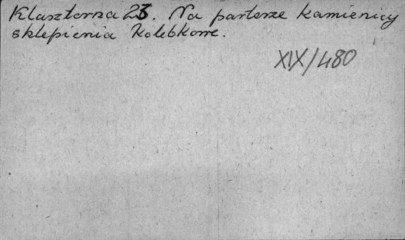 Klasztorna 23. Na parterze kamienicy
sklepienia kolebkowe.
XIX/480